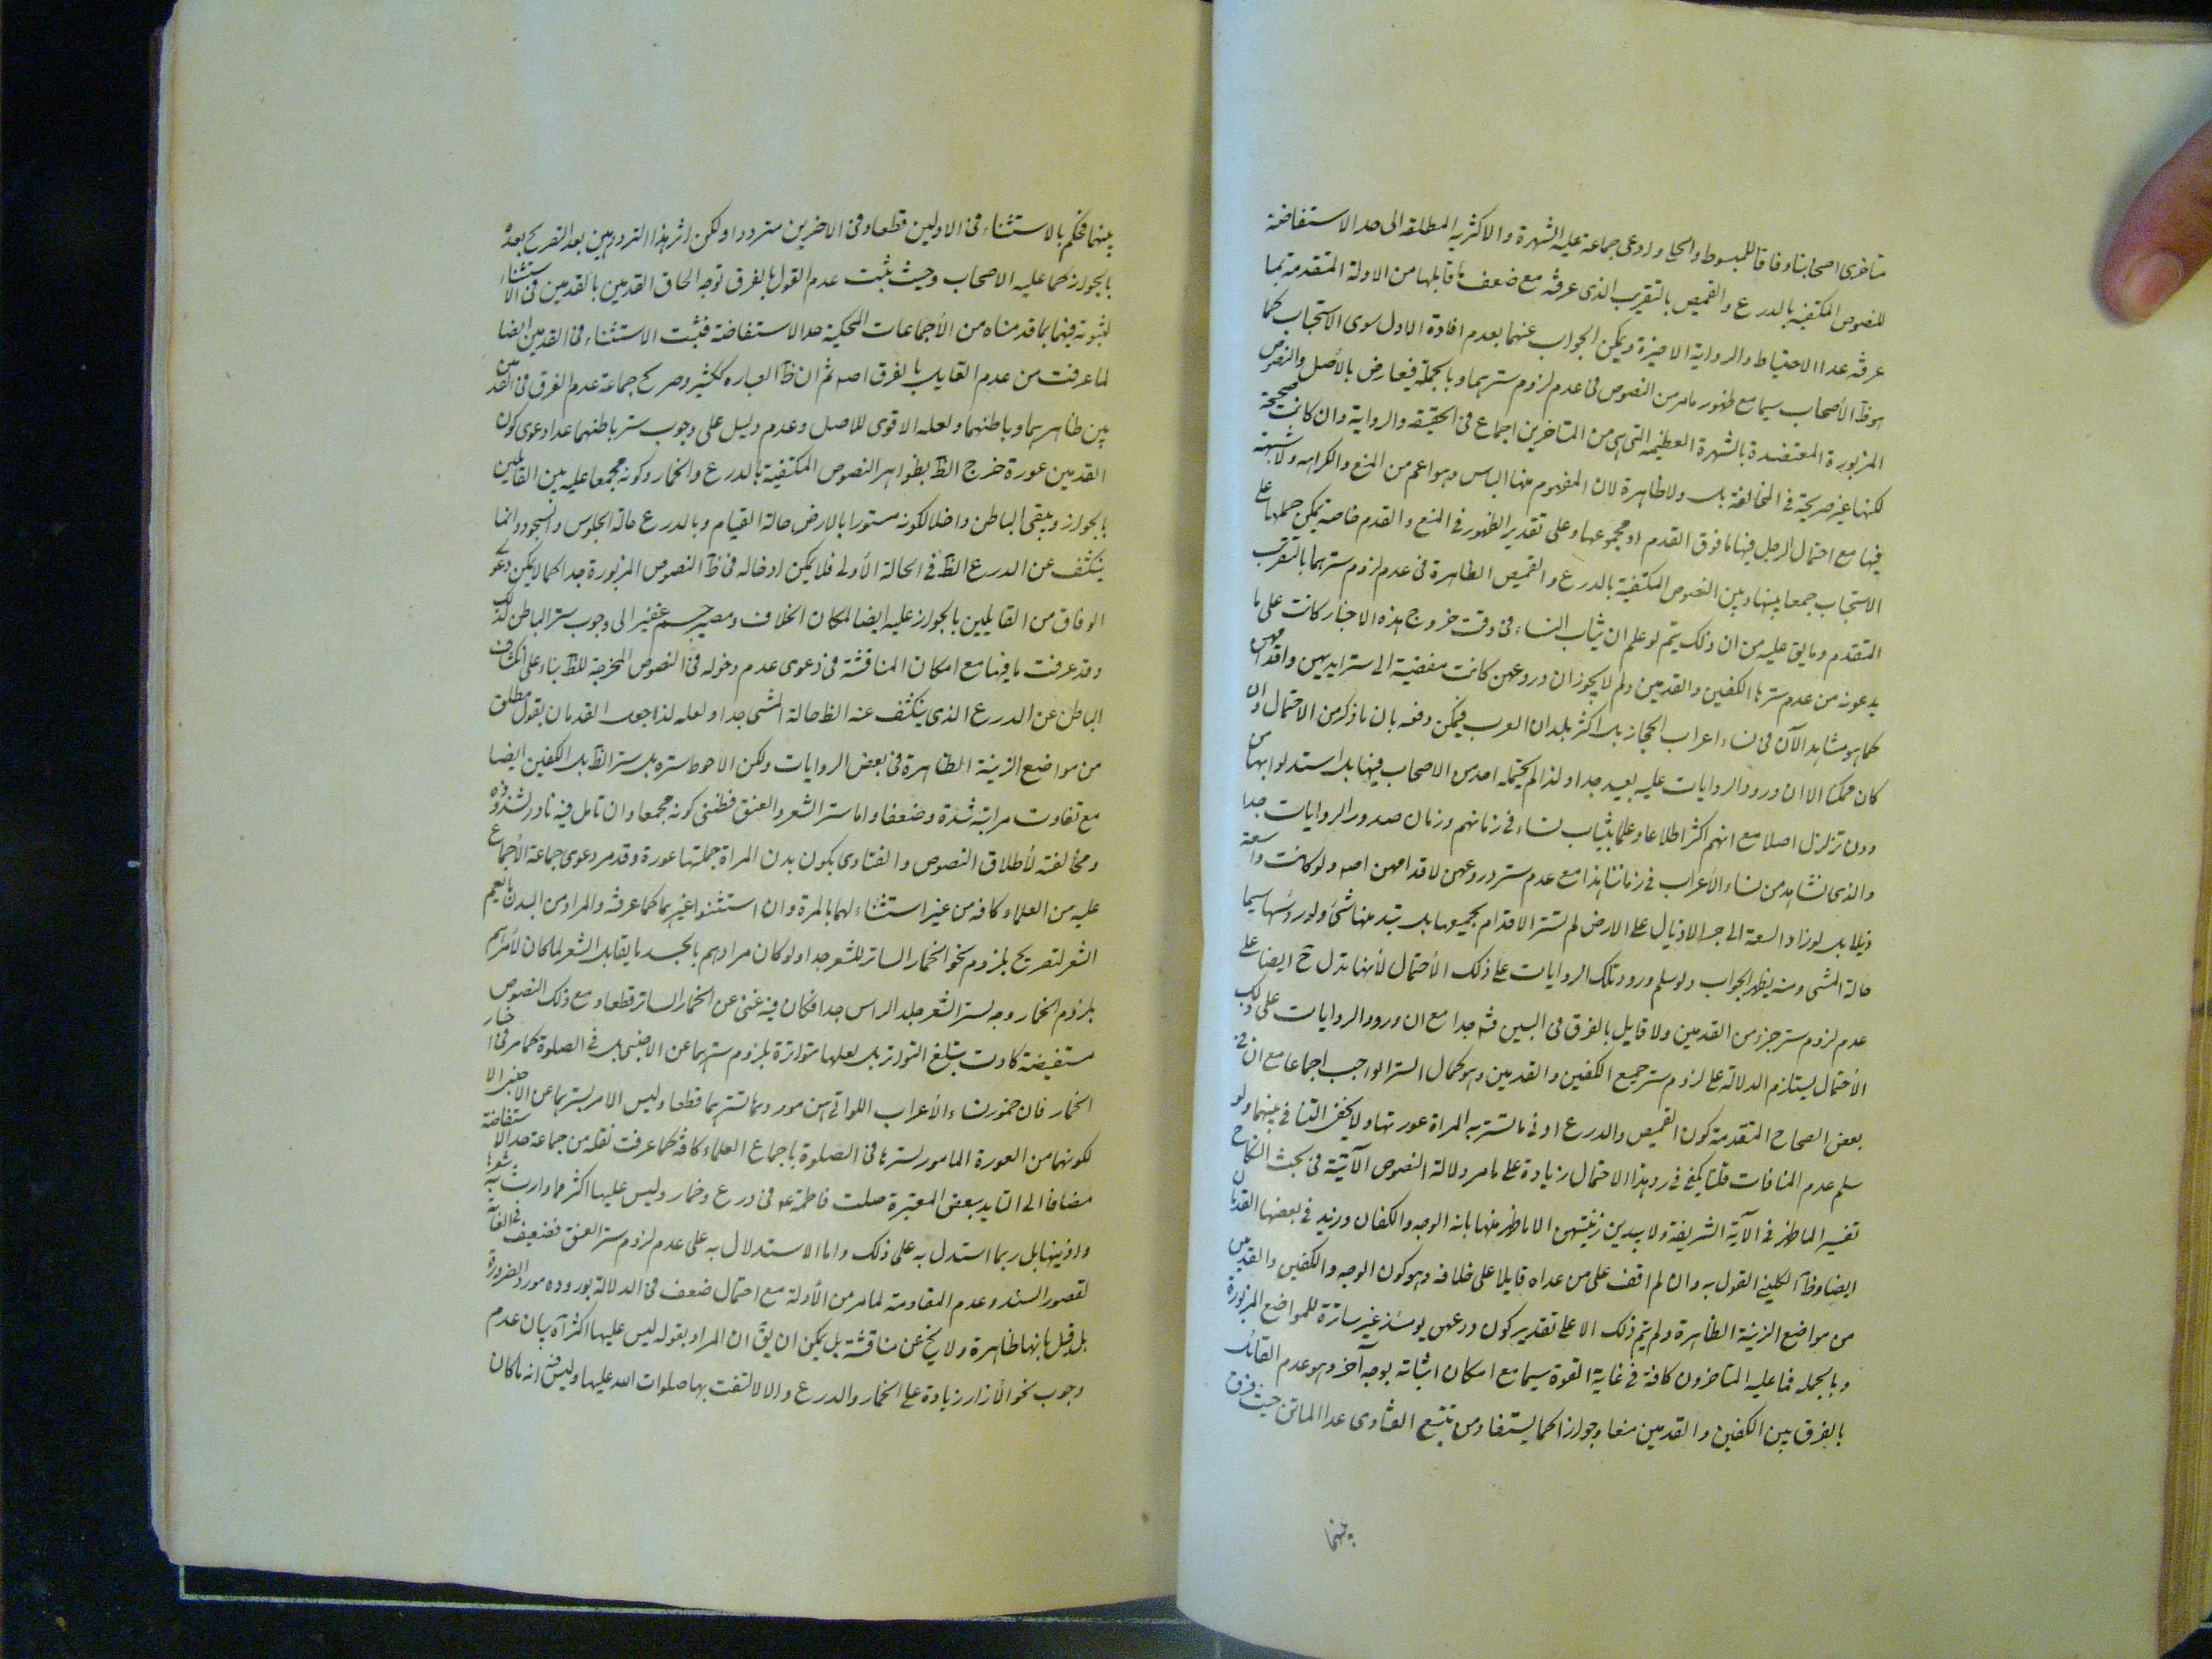 متأخرى اصحابنا وفاقا للمبسوط وادعى جماعة عليه الشهرة والاكثرية المطلقة الى حد الاستفاضة
للنصوص المكتفية بالدرع والقميص بالتقريب الذى عرفته مع ضعف ما قابلها من الادلة المتقدمة بما
عرفته عدا الاحتياط والرواية الاخيرة ويمكن الجواب عنهما بعدم افادة الاول سوى الاستحباب كما
هو ظ الأصحاب سيما مع ظهور ما مر من النصوص فى عدم لزوم سترهما وبالجملة فيعارض بالأصل والنصوص
المزبورة المعتضدة بالشهرة العظيمة التى هى من المتاخرين اجماع فى الحقيقة والرواية وان كانت صحيحة
لكنها غير صريحة فى المخالفة بل ولا ظاهرة لان المفهوم منها الباس وهو اعم من المنع والكراهه ولا شبهة
فيها مع احتمال الرجل فيها ما فوق القدم او مجموعها وعلى تقدير الظهور فى المنع والقدم خاصة يمكن حملها على
الاستحباب جمعا بينها وبين النصوص المكتفية بالدرع والقميص الظاهرة فى عدم لزوم سترهما بالتقريب
المتقدم وما يق عليه من ان ذلك يتم لو علم ان ثياب النساء فى وقت خروج هذه الاخبار كانت على ما
يدعونه من عدم سترها الكفين والقدمين ولم لا يجوز ان دروعهن كانت مفضية الى ستر ايديهن واقدامهن
كما هو مشاهد الآن فى نساء اعراب الحجاز بل اكثر بلدان العرب فيمكن دفعه بان ما ذكر من الاحتمال وان
كان ممكنا الا ان ورود الروايات عليه بعيد جدا ولذا لم يحتمله احد من الاصحاب فيها بل استدلوا بها من
دون تزلزل اصلا مع انهم اكثر اطلاعا وعلما بثياب نساء فى زمانهم وزمان صدور الروايات جدا
والذى نشاهد من نساء الأعراب فى زماننا هذا مع عدم ستر دروعهن لاقدامهن اصلا ولو كانت واسعة
ذيلا بل لو زاد السعة الى جر الاذيال على الارض لم تستر الاقدام بجميعها بل تبد منها شئ ولو رؤسها سيما
حالة المشى ومنه يظهر الجواب ولو سلم ورود تلك الروايات على ذلك الأحتمال لأنها تدل ح ايضا على
عدم لزوم ستر جزء من القدمين ولا قايل بالفرق فى البين فته جدا مع ان ورود الروايات على ذلك
الأحتمال يستلزم الدلالة على لزوم ستر جميع الكفين والقدمين وهو كمال الستر الواجب اجماعا مع ان فى
بعض الصحاح المتقدمة كون القميص والدرع ادنى ما تستر به المراة عورتها ولا يخفى التنافى بينهما ولو
سلم عدم المنافات قلنا يكفى فى رد هذا الاحتمال زيادة على ما مر دلالة النصوص الآتية فى بحث النكاح
تفسير الما ظهر فى الآية الشريفة ولا يبدين زينتهن الا ما ظهر منها بانه الوجه والكفان وزيد فى بعضها القدمان
ايضا وظ الكلينى القول به وان لم اقف على من عداه قايلا على خلافه وهو كون الوجه والكفين والقدمين
من مواضع الزينة الظاهرة ولم يتم ذلك الا على تقدير كون درعهن يومئذ غير ساترة للمواضع المزبورة
وبالجملة فما عليه المتاخرون كافة فى غاية القوة سيما مع امكان اثباته بوجه آخر وهو عدم القائل
بالفرق بين الكفين والقدمين منعا وجوازا كما يستفاد من تتبع الفتاوى عدا الماتن حيث فرق
بينهما
بينهما فحكم بالاستثناء فى الاولين قطعا وفى الاخرين مترددا ولكن اثر هذا التردد هين بعد التصريح بعده
بالجواز كما عليه الاصحاب وحيث ثبت عدم القول بالفرق توجه الحاق القدمين بالقدمين فى الاستثناء
لثبوته فيهما بما قدمناه من الأجماعات المحكية حد الاستفاضة فثبت الاستثناء فى القدمين ايضا
لما عرفت من عدم القايل بالفرق اصلا ثم ان ظ العبارة ككثير وصريح جماعة عدم الفرق فى القدمين
بين ظاهرهما وباطنهما ولعله الاقوى للاصل وعدم دليل على وجوب ستر باطنهما عدا دعوى كون
القدمين عورة خرج الظ بظواهر النصوص المكتفية بالدرع والخمار وكونه مجمعا عليه بين القائلين
بالجواز ويبقى الباطن داخلا لكونه مستورا بالارض حالة القيام وبالدرع حالة الجلوس والسجود وانما
ينكشف عن الدرع الظ فى الحالة الأولى فلا يمكن ادخاله فى ظ النصوص المزبورة جدا كما لا يمكن دعوى
الوفاق من القايلين بالجواز عليه ايضا لمكان الخلاف ومصير جم غفير الى وجوب ستر الباطن لذلك
وقد عرفت ما فيها مع امكان المناقشة فى دعوى عدم دخوله فى النصوص المخرجة للظ بناء على انكشاف
الباطن عن الدرع الذى ينكشف عنه الظ حالة المشى جدا ولعله لذا جعل القدمان بقول مطلق
من مواضع الزينة الظاهرة فى بعض الروايات ولكن الاحوط ستره بل ستر الظ بل الكفين ايضا
مع تفاوت مراتبه شدة وضعفا واما ستر الشعر والعنق فظنى كونه مجمعا وان تامل فيه نادر لشذوذه
ومخالفته لأطلاق النصوص والفتاوى بكون بدن المراة جملتها عورة وقد مر دعوى جماعة الأجماع
عليه من العلماء كافة من غير استثناء لهما بالمرة وان استثنوا غيرهما كما عرفته والمراد من البدن ما يعم
الشعر لتصريح بلزوم نحو الخمار الساتر للشعر جدا ولو كان مرادهم بالجسد ما يقابل الشعر لما كان لأمرهم
بلزوم الخمار وجه لستر الشعر جلد الراس جدا فكان فيه غنى عن الخمار الساتر قطعا ومع ذلك النصوص
مستفيضة كادت تبلغ التواتر بل لعلها متواترة بلزوم سترهما عن الاجنبى بل فى الصلوة كما مر فى اخبار
الخمار فان خمور نساء الأعراب اللواتى هن موردها تسترهما قطعا وليس الامر بسترهما عن الاجنبى الا
لكونهما من العورة المامور بسترها فى الصلوة باجماع العلماء كافة كما عرفت نقله من جماعة حد الاستفاضة
مضافا الى التايد ببعض المعتبرة صلت فاطمة ع فى درع وخمار وليس عليها اكثر مما وارت به شعرها
واذنيها بل ربما استدل به على ذلك واما الاستدلال به على عدم لزوم ستر العنق فضعيف فى الغاية
لقصور السند وعدم المقاومة لما مر من الأدلة مع احتمال ضعف فى الدلالة بوروده مورد الضرورة
بل قيل بانها ظاهرة ولا يخ عن مناقشة بل يمكن ان يق ان المراد بقوله ليس عليها اكثر آه بيان عدم
وجوب نحو الأزار زيادة على الخمار والدرع والا لالتفت بها صلوات الله عليها وليس فيه انه ما كان